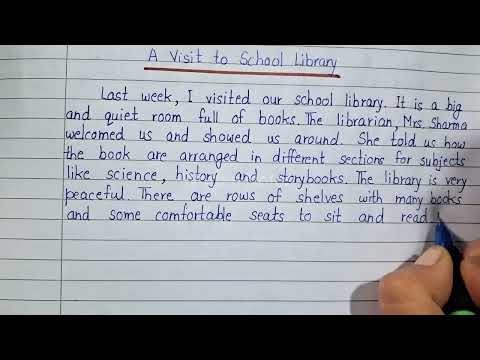 A Visit to School Library
Last week, I visited our school library. It is a big
and quiet room full of books. The librarian, Mrs. Sharma
welcomed us and showed us around. She told us how
the book are arranged in different sections for subjects
like science, history and storybooks. The library is very
peaceful. There are rows of shelves with many books
and some comfortable seats to sit and read